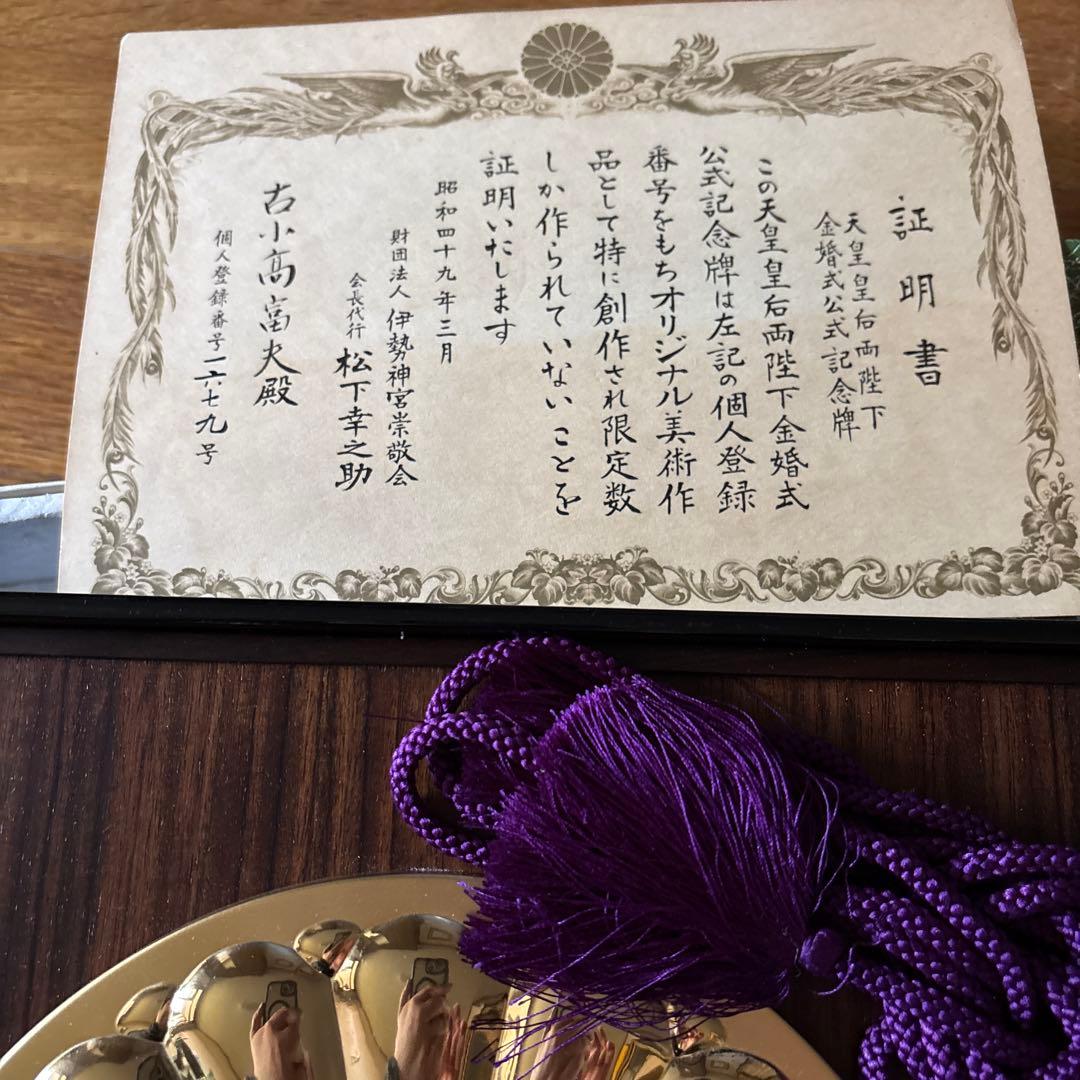 証明書
天皇皇后両陛下
金婚式公式記念牌
この天皇皇后両陛下金婚式
公式記念牌は左記の個人登録
番号をもちオリジナル美術作
品として特に創作され限定数
しか作られていないことを
証明いたします
昭和四十九年三月
財団法人 伊勢神宮崇敬会
会長代行 松下幸之助
古小高富夫殿
個人登録番号一六七九号